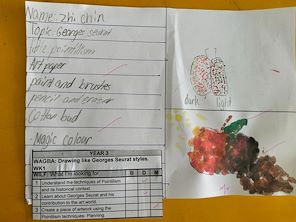 Name: zhi chin
Topic: Georges seurat
Title: pointillism
Art paper
paint and brushes
pencil and eraser
Cotton bud
-Magic colour
dark light
YEAR 3
WAGBA: Drawing like Georges Seurat styles.
WK1
WILF: B D M
1 Understand the techniques of Pointillism and its historical context.
2 Learn about Georges Seurat and his contribution to the art world.
3 Create a piece of artwork using the Pointillism techniques: Planning.